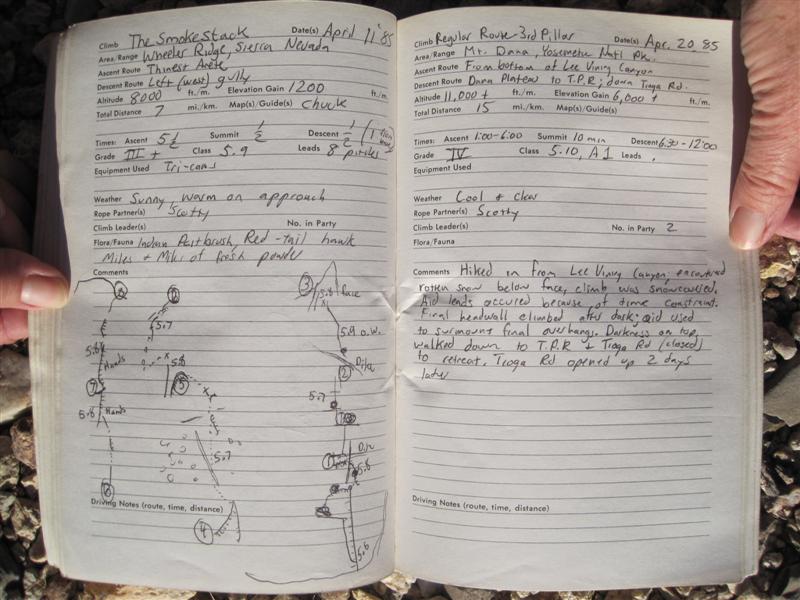 Climb The Smokestack Date(s) April 11 '85
Area/Range Wheeler Ridge, Sierra Nevada
Ascent Route Thinest Arete
Descent Route Left (west) gully
Altitude 8000 ft./m. Elevation Gain 1200 ft./m.
Total Distance 7 mi./km. Map(s)/Guide(s) chuck
Times: Ascent 5 1/2 Summit 1/2 Descent 1/2 (1
Grade III + Class 5.9 Leads 8 pitches
Equipment Used Tri-cams
Weather Sunny, warm on approach
Rope Partner(s) Scotty
Climb Leader(s) No. in Party
Flora/Fauna Indian Paitbrush, Red-tail hawk
Miles + Miles of fresh powder
Comments
3
5.8 face
5.7
5.9 o.w.
5.8
Hands
5.8
2
5.7
5.8 Hands
5.7
1
5.8
4
5.6
Driving Notes (route, time, distance)
Climb Regular Route - 3rd Pillar Date(s) Apr. 20, 85
Area/Range Mt. Dana, Yosemete Natl Pk.
Ascent Route From bottom of Lee Vining Canyon
Descent Route Dana Plateau to T.P.R; down Tioga Rd.
Altitude 11,000 + ft./m. Elevation Gain 6,000 + ft./m.
Total Distance 15 mi./km. Map(s)/Guide(s)
Times: Ascent 1:00-6:00 Summit 10 min Descent 6:30-12:00
Grade IV Class 5.10, A1 Leads
Equipment Used
Weather Cool + clear
Rope Partner(s) Scotty
Climb Leader(s) No. in Party 2
Flora/Fauna
Comments Hiked in from Lee Vining Canyon; encountered
rotten snow below face, climb was snowcovered.
Aid leads occured because of time constraint.
Final headwall climbed after dark; aid used
to surmount final overhang. Darkness on top,
walked down to T.P.R + Tioga Rd (closed)
to retreat. Tioga Rd opened up 2 days
later
Driving Notes (route, time, distance)